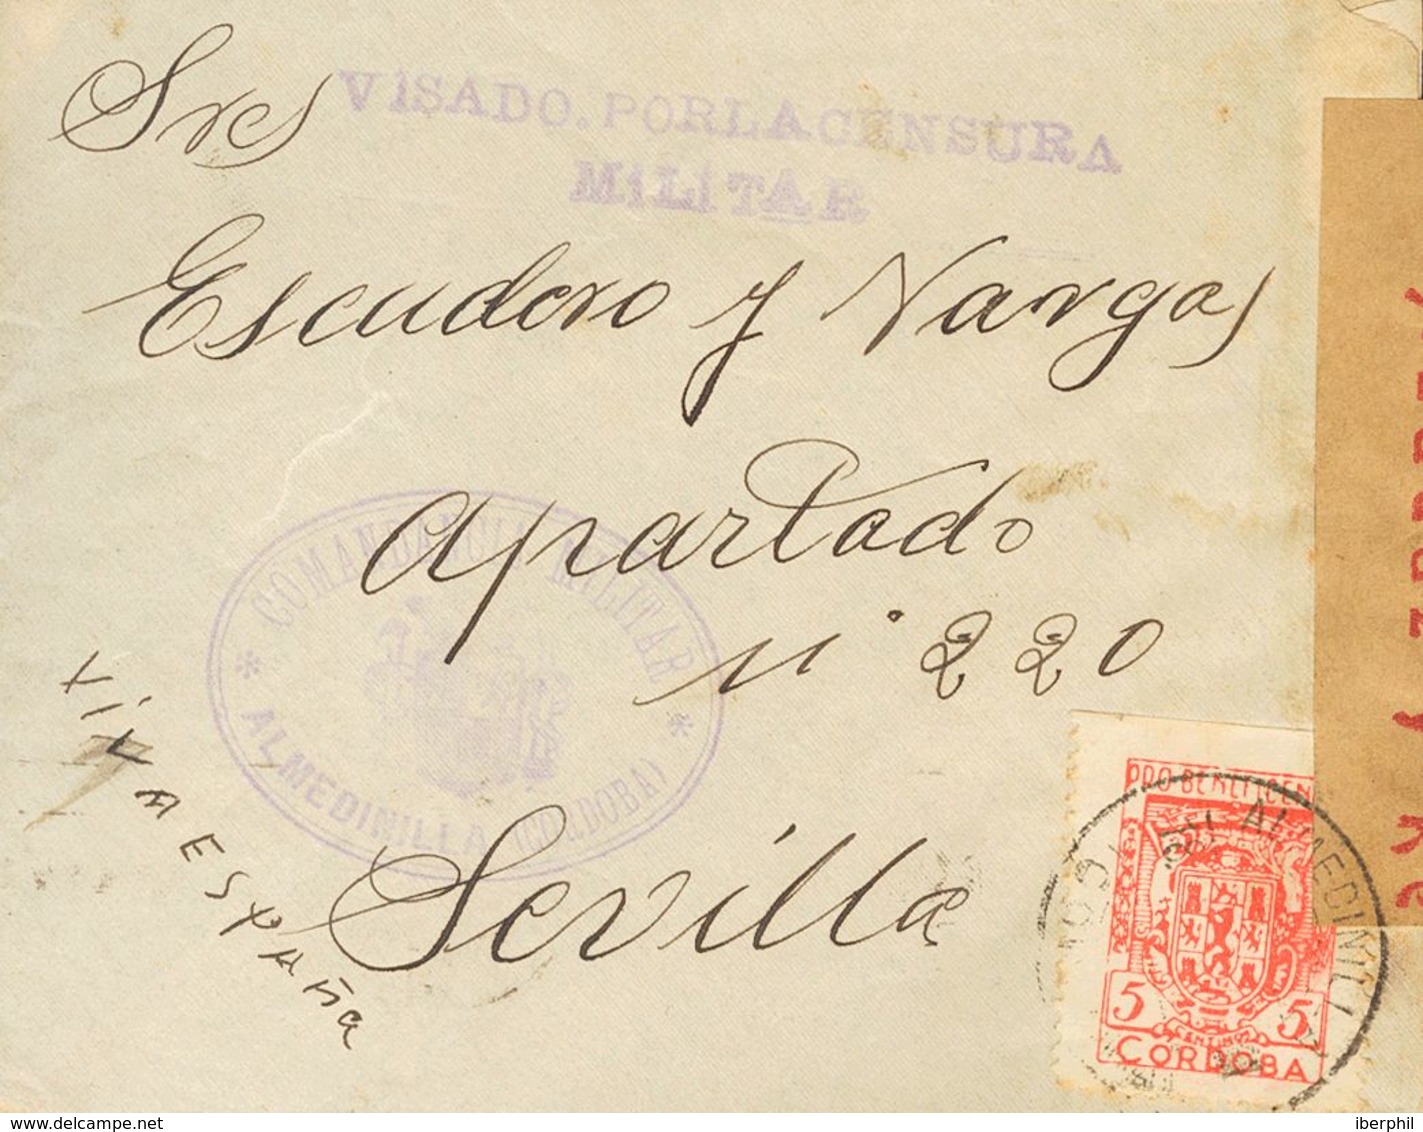 Sres
VISADO.PORLACENSURA
MILITAR
Escudero y Vargas
Apartado
nº 220
Sevilla
* COMANDANCIA MILITAR *
ALMEDINILLA (CORDOBA)
VIVA ESPAÑA
PRO-BENEFICEN
5 5
CENTIMOS
CORDOBA
ALMEDINILL
delcampe.net
iberphil